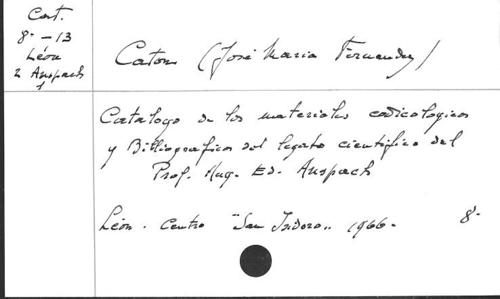 Cat.
8º - 13
Léon
2 Anspach
1
Caton (José Maria Fernandez)
Catalogo de los materiales codicologicos
y Bibliograficos del legato cientifico del
Prof. Aug. Ed. Anspach
Léon. Centro "San Isidoro" 1966. 8º